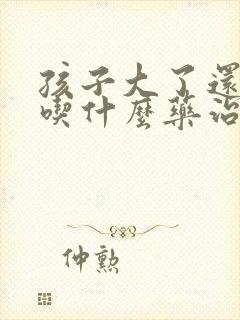 孩子大了還
喫什麼藥治
仲勲